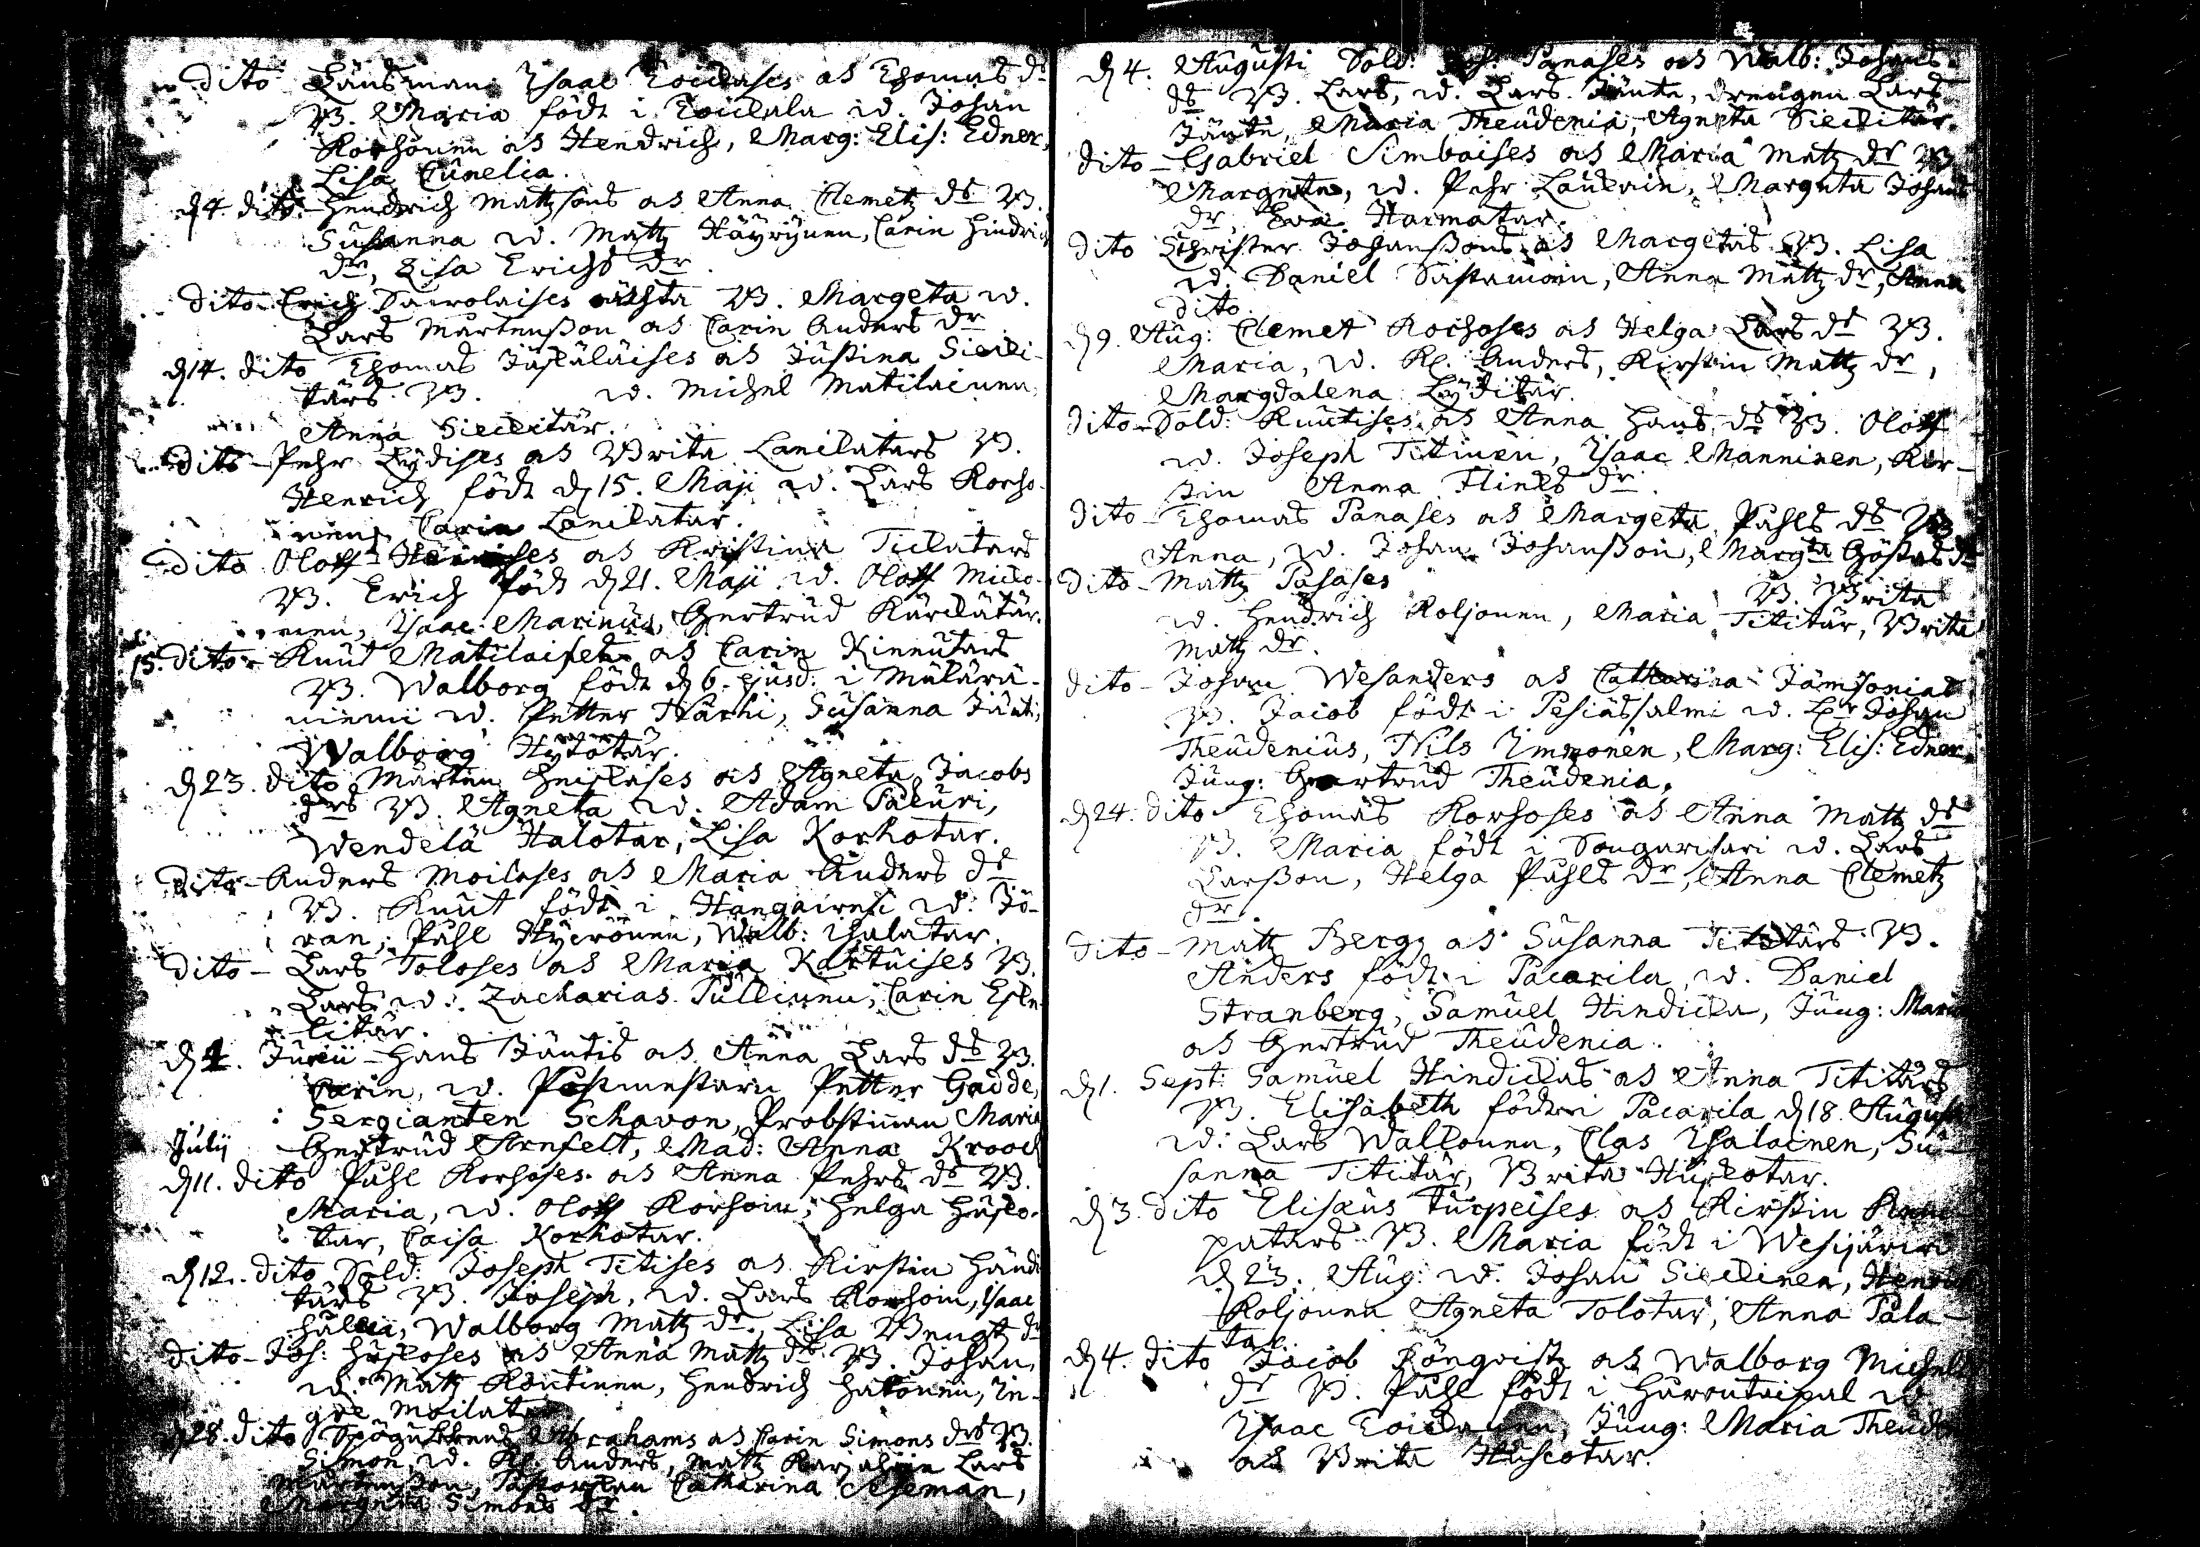 Dito Länsman Ysaac Toickases as Thomas dr
B. Maria född i Toickala w. Johan
Korhonen as Hendrich, Marg: Elis: Edner,
Lisa Cunelia.
d 4. dito. Hendrich Matzsons as Anna Clemetz ds B.
Susanna w. Matz Häyrynen, Carin Hindrich
dr, Lisa Erichs dr
Dito Erich Sawolaises B. Margeta w.
Lars Mårtensson as Carin Anders dr
d 14. dito Thomas Jäskäläises as Justina Sicili-
tärs B. w. Michel Matilainen
Anna Sickitär.
Dito Pehr Lydises as Brita Lanilatars B.
Henrich född d 15. Maji w. Lars Korho-
nen, Carin Lanilatar.
Dito Oloff as Kristina Ticlatars
B. Erich född d 21. Maji w. Oloff Micko-
nen, Ysaac Marinus, Gertrud Kärckätär.
15. Dito Knut Matilaises as Carin Kinnutars
B. Walborg född d 6. ejusd: i Mulära-
niemi w. Petter Härki, Susanna Jänti,
Walborg Hytötär.
d 23. dito Mårten Heiskases as Agneta Jacobs
drs B. Agneta w. Adam Pakuri,
Wendela Halotar, Lisa Korhotar.
Dito Anders Moilases as Maria Anders ds
B. Knut född i Hangairest w: Jö-
ran, Påhl Hyvönen, Walb: Isalatar.
Dito Lars Toloses as Maria Kortuises B.
Lars w: Zacharias Pullinen, Carin Eske-
litär.
d 4. Junii Hans Jäntis as Anna Lars ds B.
Carin, w. Postmestaren Petter Gadde,
Sergianten Schavon, Probstinnan Maria
July Gertrud Arnfelt, Mad: Anna Krooch
d 11. dito Påhl Korhoses as Anna Pehrs ds B.
Maria, w. Oloff Korhoin, Helga Husko-
tar, Caisa Korhotar.
d 12. dito Sold: Joseph Titises as Kirstin Händi
tärs B. Joseph, w. Lars Korhoin, Ysaac
Walborg Matz dr, Lisa Bengtz dr
Dito Joh: Huskoses as Anna Matz ds B. Johan,
w. Matz Routinen, Hendrich Hatonen, In-
gre Moilatar
d 28. dito Abrahams as Carin Simons drs B.
Simon w. Kl: Anders, Matz Karjalain Lars
Mårtensson, Pastorskan Catharina Aseman,
Margeta Simons dr.
d 4. Augusti Sold: Joh: Panases as Walb: Johans
ds B. Lars, w. Lars Jäntti, drengen Lars
Jäntti, Maria Theudenia, Agneta Sickitär.
Dito Gabriel Simbaises as Maria Matz dr B.
Margeta, w. Pehr Laukain, Margeta Johans
dr, Eva Harmatar.
Dito Christer Johanssons as Margetas B. Lisa
w. Daniel Sastamoin, Anna Matz dr, Anna
dito.
d 9. Aug: Clemet Korhoses as Helga Lars ds B.
Maria, w. Kl: Anders, Kirstin Matz dr,
Magdalena Lyditär.
Dito Sold: Knutises as Anna Hans ds B. Oloff
w. Joseph Titinen, Ysaac Manninen, Kir-
stin Anna Flinks dr.
Dito Thomas Panases as Margeta Påhls ds B.
Anna, w. Johan Johansson, Margta Göstas dr
Dito Matz Pasases B. Brita
w. Hendrich Koljonen, Maria Tititär, Brita
Matz dr.
Dito Johan Wesanders as Catharina Jämsonias
B. Jacob född i Pesiässalmi w. Johan
Theudenius, Nils Immonen, Marg: Elis: Edner
Jung: Geertrud Theudenia.
d 24. dito Thomas Korhoses as Anna Matz ds
B. Maria född i Sougarisari w. Lars
Larsson, Helga Påhls dr, Anna Clemetz
dr.
Dito Matz Bergz as Susanna Tititärs B.
Anders född i Pacarila, w. Daniel
Stranberg, Samuel Hindicka, Jung: Maria
as Gertrud Theudenia.
d 1. Sept: Samuel Hindickas as Anna Tititärs
B. Elisabeth född i Pacarila d 18. August
w: Lars Walkonen, Clas Ysalainen, Su-
sanna Tititär, Brita Huskotar.
d 3. dito Elisæus Turpeises as Kirstin
patars B. Maria född i Wesijärwi
d 23. Aug: w. Johan Sickinen, Henrich
Koljonen Agneta Tolotar, Anna Pala-
tar
d 4. dito Jacob Lönqvistz as Walborg Michels
dr B. Påhl född i Hurrutaipal w.
Ysaac Toickanen, Jung: Maria Theuden
as Brita Huscotar.